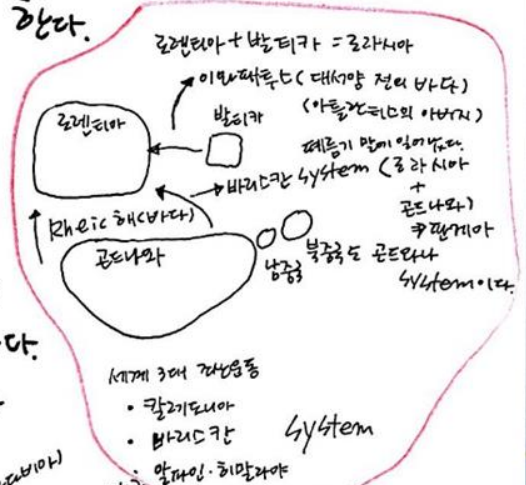 한다.
로렌티아 + 발티카 = 로라시아
이아패투스 (대서양 전의 바다)
(아틀란티스의 아버지)
로렌티아
발티카
페름기 말에 일어났다.
바리스칸 System (로라시아
+
곤드나와)
⇒ 판게아
Rheic 해(바다)
곤드나와
남중국
북중국도 곤드와나
System이다.
다.
세계 3대 조산운동
• 칼레도니아
• 바리스칸
• 알파인·히말라야
System